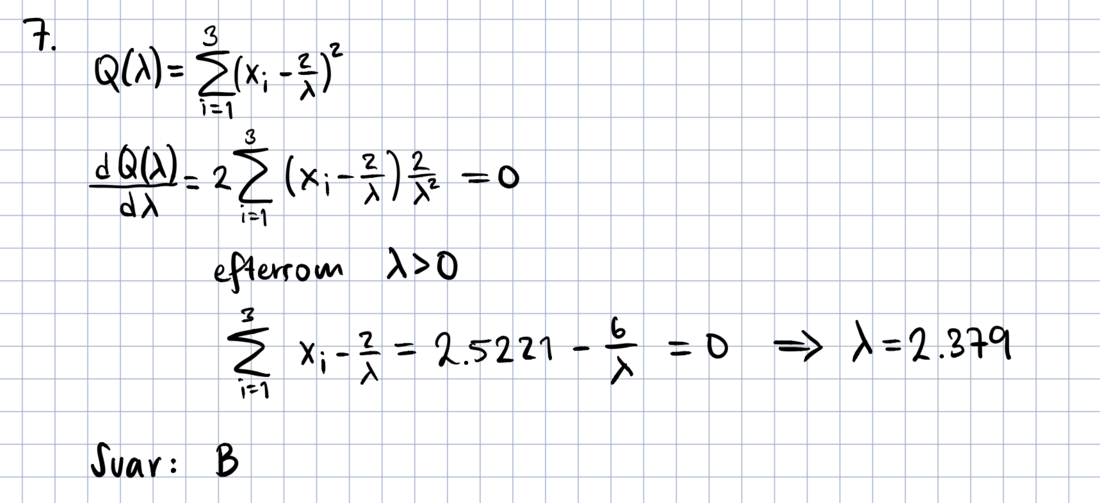 7.
Q(λ) = ∑_{i=1}^{3} (x_i - 2/λ)^2
dQ(λ)/dλ = 2 ∑_{i=1}^{3} (x_i - 2/λ) 2/λ^2 = 0
eftersom λ > 0
∑_{i=1}^{3} x_i - 2/λ = 2.5221 - 6/λ = 0 ⟹ λ = 2.379
Svar: B